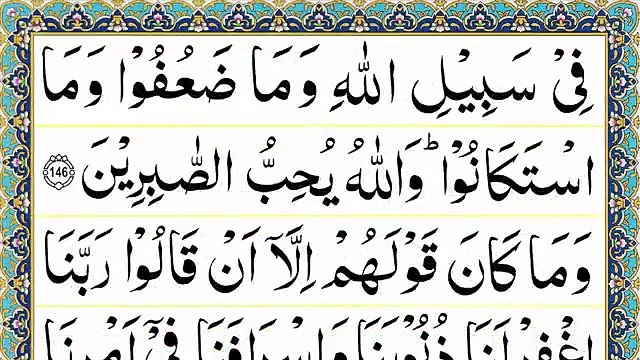 فِىْ سَبِيْلِ اللّٰهِ وَمَا ضَعُفُوْا وَمَا
اسْتَكَانُوْا ؕ وَاللّٰهُ يُحِبُّ الصّٰبِرِيْنَ 146
وَمَا كَانَ قَوْلَهُمْ اِلَّاۤ اَنْ قَالُوْا رَبَّنَا
اغْفِرْ لَنَا ذُنُوْبَنَا وَاِسْرَافَنَا فِىْۤ اَمْرِنَا